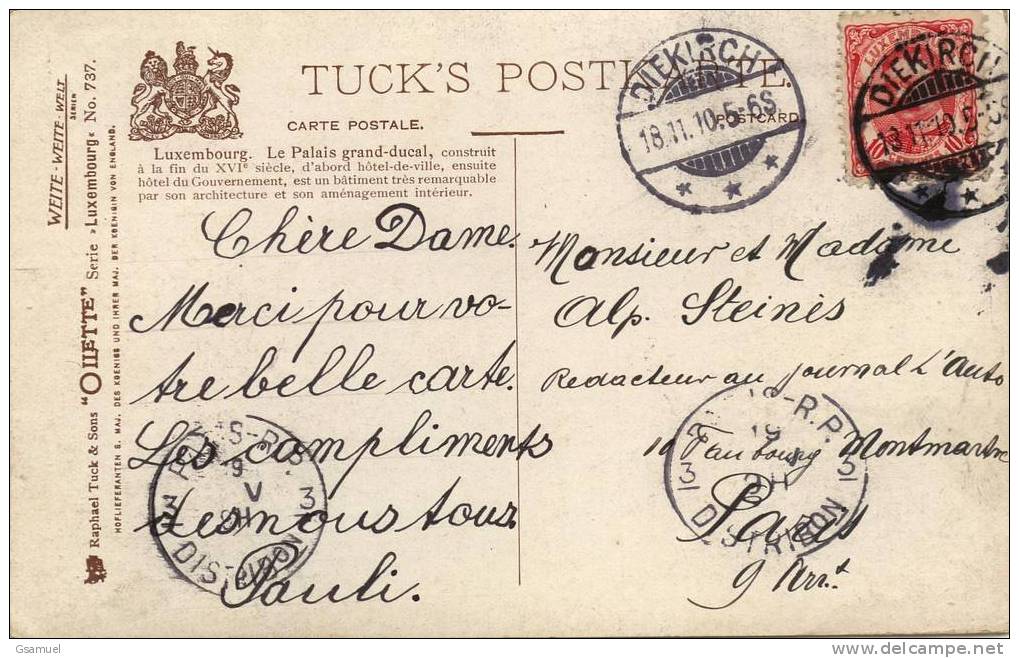 TUCK'S POSTKARTE.
CARTE POSTALE.
POSTCARD
Luxembourg. Le Palais grand-ducal, construit
à la fin du XVIe siècle, d'abord hôtel-de-ville, ensuite
hôtel du Gouvernement, est un bâtiment très remarquable
par son architecture et son aménagement intérieur.
WEITE-WEITE-WELT
SERIEN
Raphael Tuck & Sons "OIlETTE" Serie »Luxembourg« No. 737.
HOFLIEFERANTEN S. MAJ. DES KOENIGS UND IHRER MAJ. DER KOENIGIN VON ENGLAND.
DIEKIRCH
18.11.10.5-6S
LUXEM
DIEKIRCH
18.11.10.5-6S
10
Chère Dame.
Merci pour vo-
tre belle carte.
Les compliments
de nous tous.
Pauli.
Monsieur et Madame
Alp. Steinès
Redacteur au journal L'Auto
10 Faubourg Montmartre
Paris
9 Arr.t
PARIS-R.P.
19
V
3 3
DISTRIBON
PARIS-R.P.
19
3 3
DISTRIBON
Gsamuel
www.delcampe.net